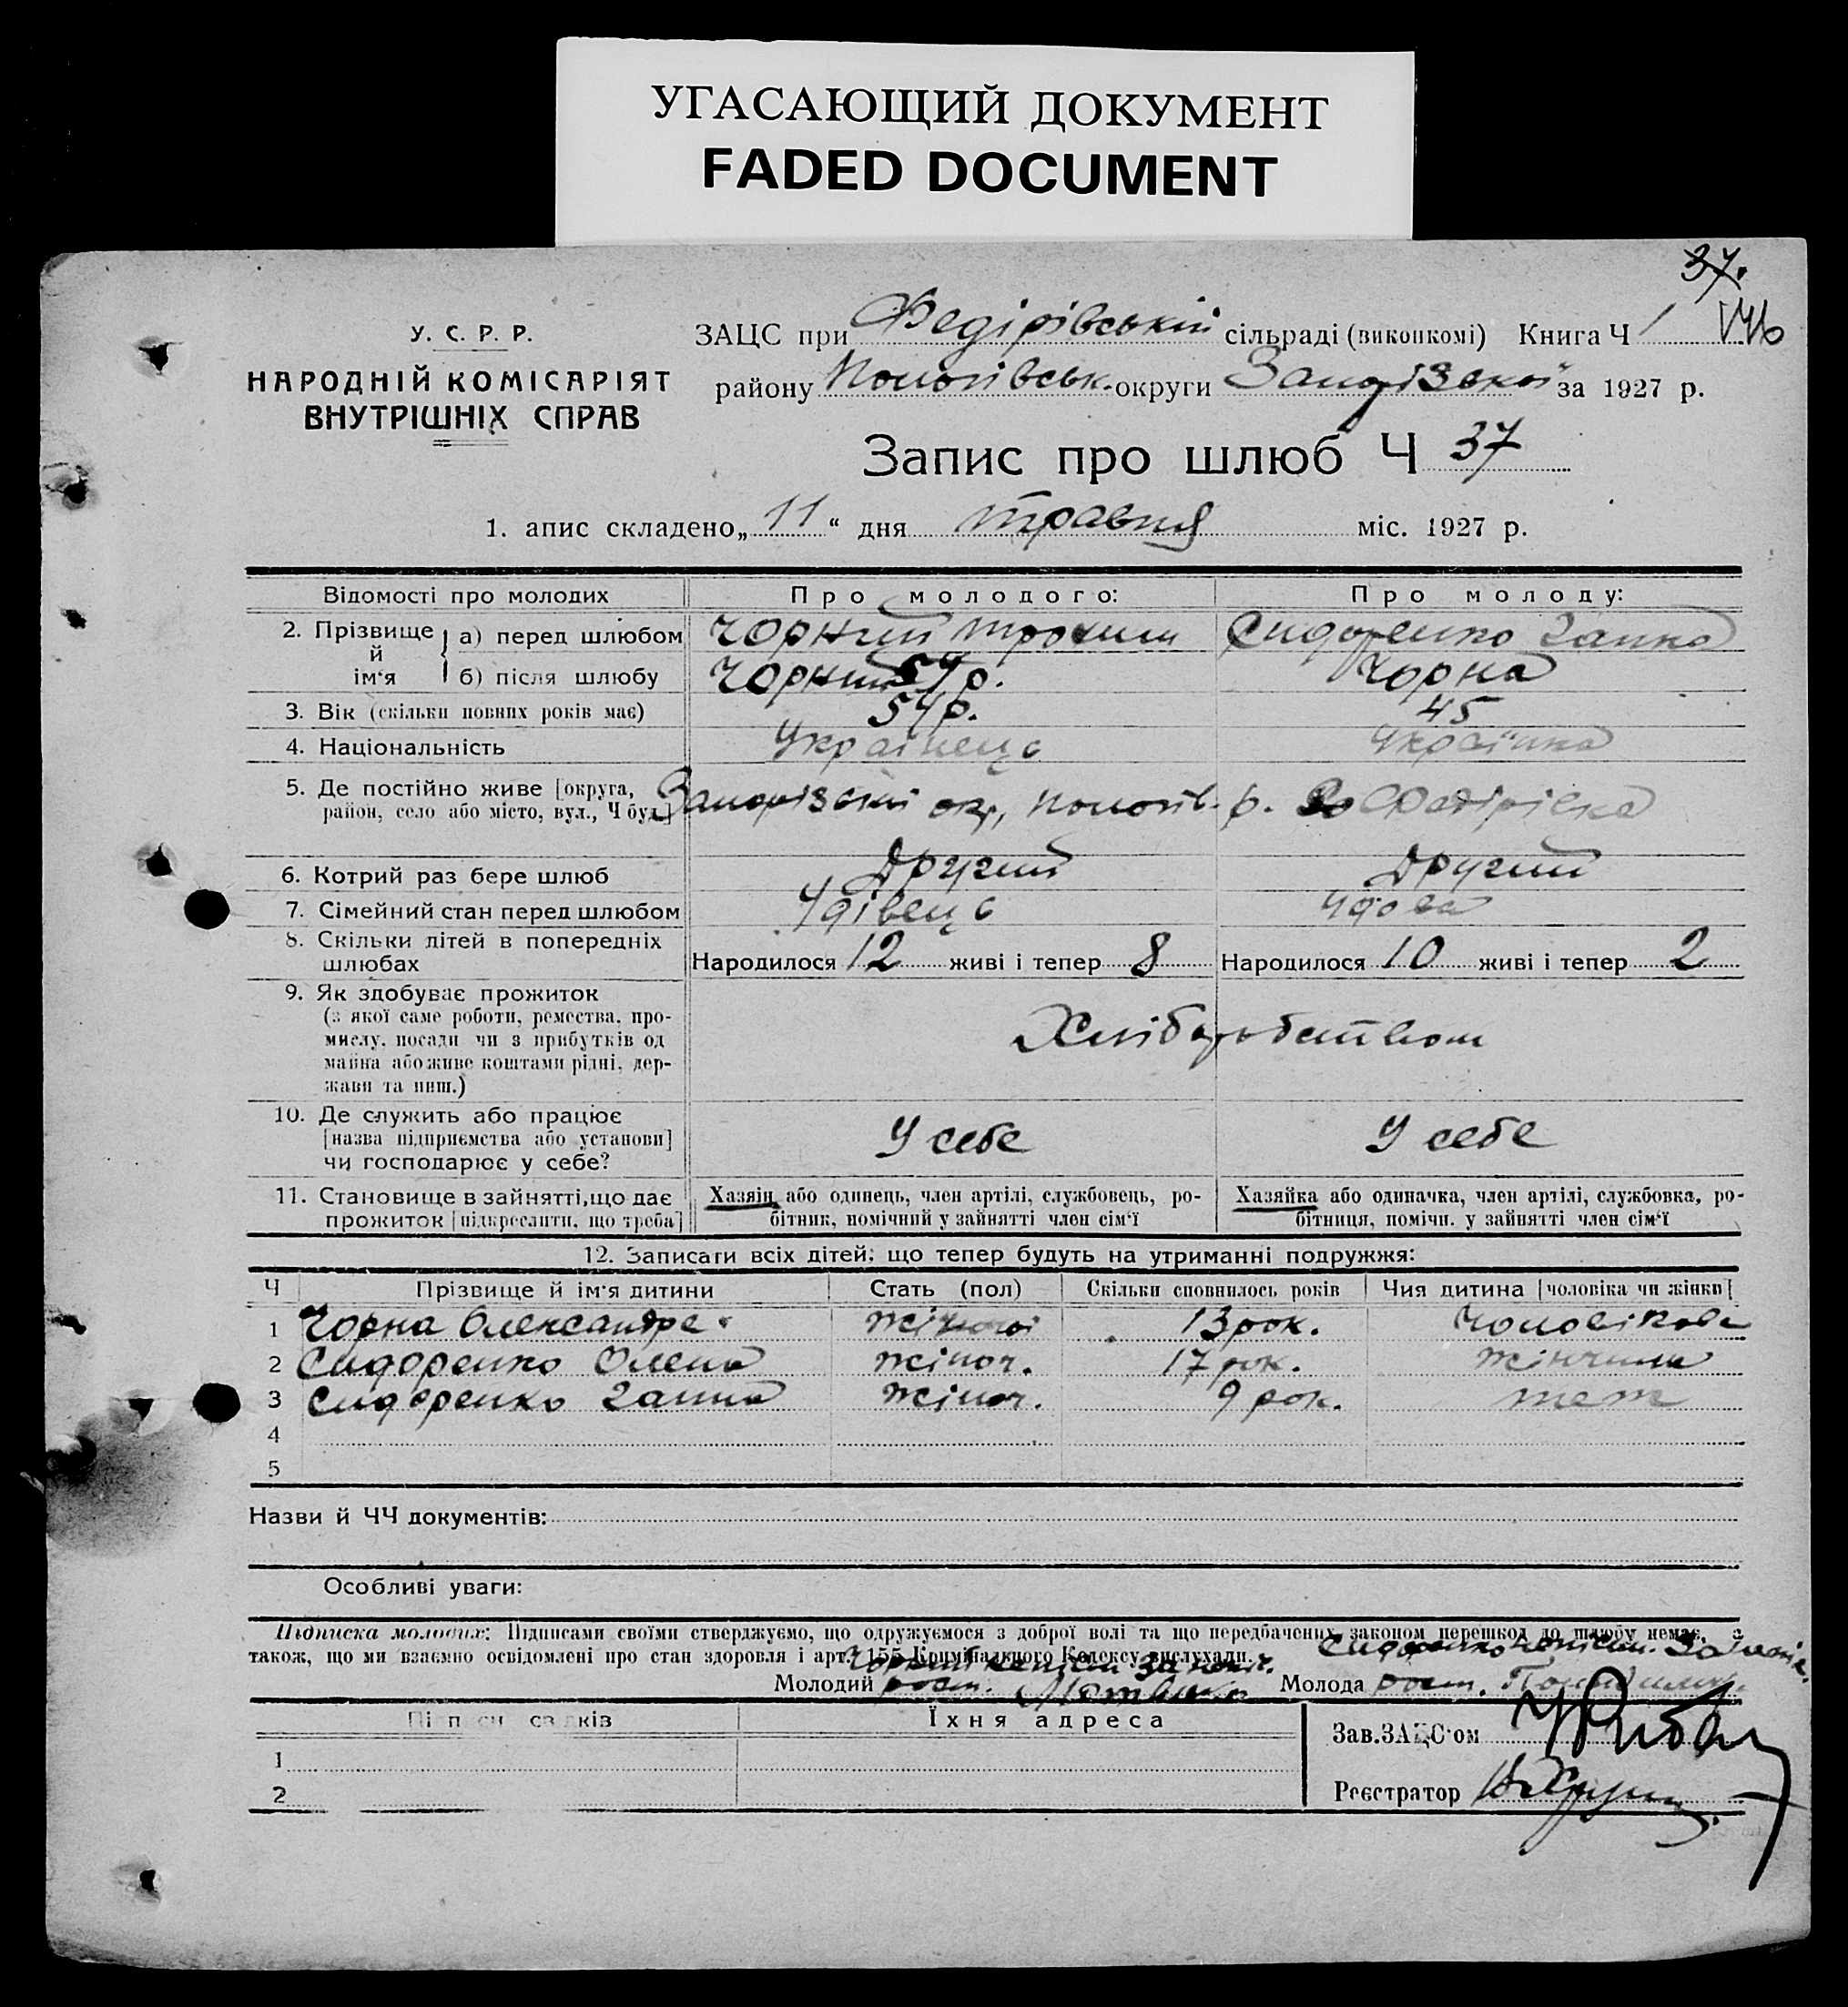 УГАСАЮЩИЙ ДОКУМЕНТ
FADED DOCUMENT
37.
У. С. Р. Р.
НАРОДНІЙ КОМІСАРІЯТ
ВНУТРІШНІХ СПРАВ
ЗАЦС при Федірівській сільраді (виконкомі) Книга Ч 1
району Пологівськ. округи Запорізької за 1927 р.
Запис про шлюб Ч 37
1. апис складено „11“ дня травня міс. 1927 р.
Відомості про молодих Про молодого: Про молоду:
2. Прізвище й ім‘я а) перед шлюбом Чорний Трохим Сидоренко Ганна
б) після шлюбу Чорний 54 р. Чорна
3. Вік (скільки повних років має) 54 р. 45
4. Національність Українець Українка
5. Де постійно живе [округа, район, село або місто, вул., Ч буд.] Запорізький окр, Пологів. р. Федірівка
6. Котрий раз бере шлюб Другий Другий
7. Сімейний стан перед шлюбом Удівець Удова
8. Скільки дітей в попередніх шлюбах Народилося 12 живі і тепер 8 Народилося 10 живі і тепер 2
9. Як здобуває прожиток
(з якої саме роботи, ремества, про-
мислу, посади чи з прибутків од
майна або живе коштами рідні, дер-
жави та инш.)
Хліборобством
10. Де служить або працює
[назва підприємства або установи]
чи господарює у себе?
У себе У себе
11. Становище в зайнятті, що дає
прожиток [підкреслити, що треба]
Хазяін або одинець, член артілі, службовець, ро-
бітник, помічний у зайнятті член сім‘ї
Хазяйка або одиначка, член артілі, службовка, ро-
бітниця, помічн. у зайнятті член сім‘ї
12. Записати всіх дітей: що тепер будуть на утриманні подружжя:
Ч Прізвище й ім‘я дитини Стать (пол) Скільки сповнилось років Чия дитина [чоловіка чи жінки]
1 Чорна Олександра 13 рок. Чоловікова
2 Сидоренко Олена жіноч. 17 рок. жінчина
3 Сидоренко Ганна жіноч. 9 рок. теж
4
5
Назви й ЧЧ документів:
Особливі уваги:
Підписка молодих: Підписами своїми стверджуємо, що одружуємося з доброї волі та що передбачених законом перешкод до шлюбу немає, а
також, що ми взаємно освідомлені про стан здоровля і арт. 155 Кримінального Кодексу вислухали.
Молодий Молода
Підписи свідків Їхня адреса
Зав.ЗАЦС‘ом
1
Реєстратор
2